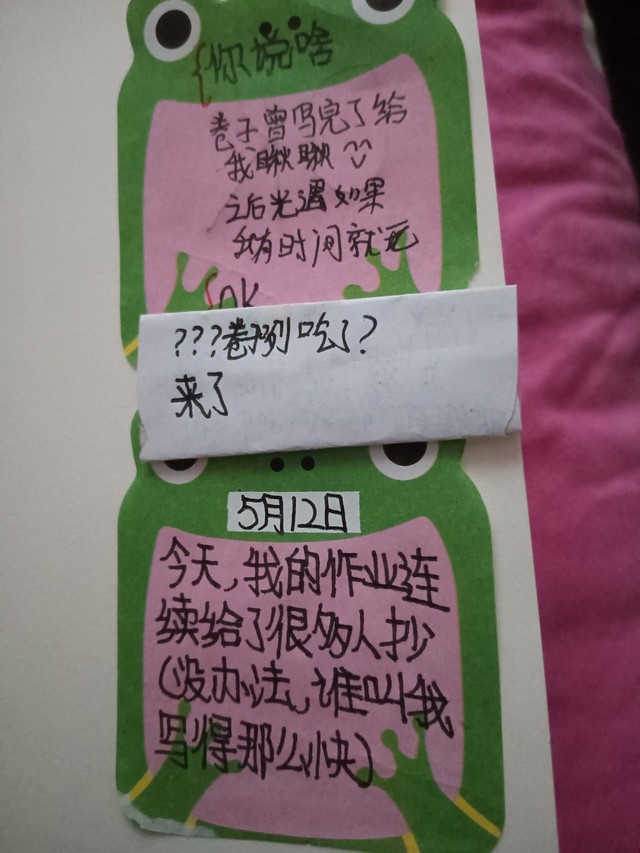 你说啥
卷子曾写完了给
我瞅瞅
之后光遇如果
我有时间就玩
OK
???卷别吃了?
来了
5月12日
今天,我的作业连
续给了很多人抄
(没办法,谁叫我
写得那么快)